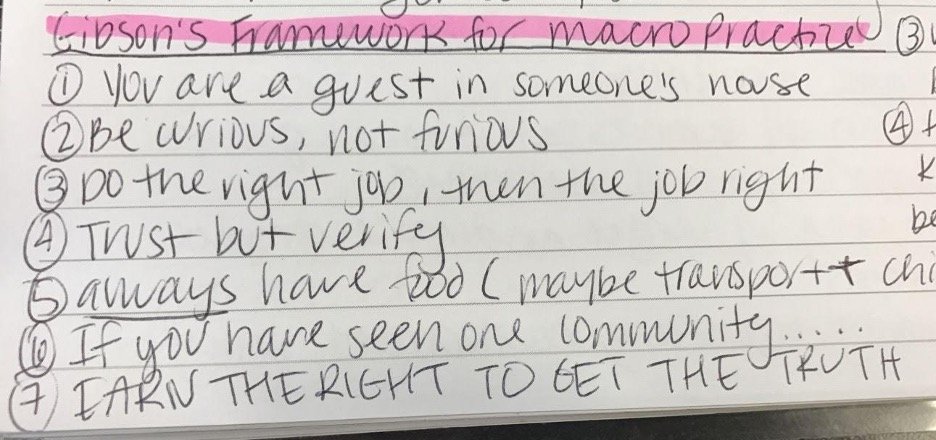 Gibson's Framework for macro Practice ③
① You are a guest in someone's house
② Be curious, not furious ④
③ Do the right job, then the job right
④ Trust but verify be
⑤ always have food ( maybe transport + chi
⑥ If you have seen one community.....
⑦ EARN THE RIGHT TO GET THE TRUTH